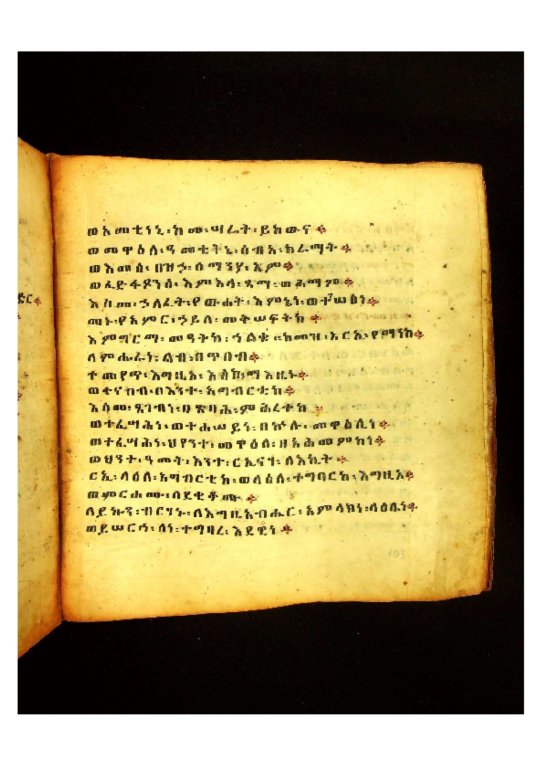 ድር፨
ወአመቲነኒ፡ከመ፡ሣሬት፡ይከውና፨
ወመዋዕለ፡ዓመቲትኒ፡ሰብአ፡ክራማት፨
ወእመሰ፡በዝኃ፡ሰማንያ፡አም፨
ወፈድፋዶንሰ፡እምእላ፡ጻማ፡ወሕማም፨
እስመ፡ኃለፈት፡የውሐት፡እምኔነ፡ወተገሠጸነ፨
መኑ፡የአምር፡ኃይለ፡መቅሠፍትከ፨
እምግርማ፡መዓትከ፡ኀልቁ፡ከመዝ፡አርኢ፡የማንከ፨
ለምሑራነ፡ልብ፡በጥበብ፨
ተመየጥ፡እግዚኦ፡እስከ፡ማእዜኑ፨
ወተናከብ፡በእንተ፡አግብርቲከ፨
እስመ፡ጸገብነ፡በጽባሕ፡ምሕረትከ፨
ወተፈሣሕነ፡ወተሐሠይነ፡በኵሉ፡መዋዕሊነ፨
ወተፈሣሕነ፡ህየንተ፡መዋዕለ፡ዘአሕመምከነ፨
ወህየንተ፡ዓመት፡እንተ፡ርኢናሃ፡ለእኪት፨
ርኢ፡ላዕለ፡አግብርቲከ፡ወላዕለ፡ተግባርከ፡እግዚኦ፨
ወምርሖሙ፡ለደቂቆሙ፨
ለይኩን፡ብርሃኑ፡ለእግዚአብሔር፡አምላክነ፡ላዕሌነ፨
ወይሠርሕ፡ለነ፡ተግባረ፡እደዊነ፨